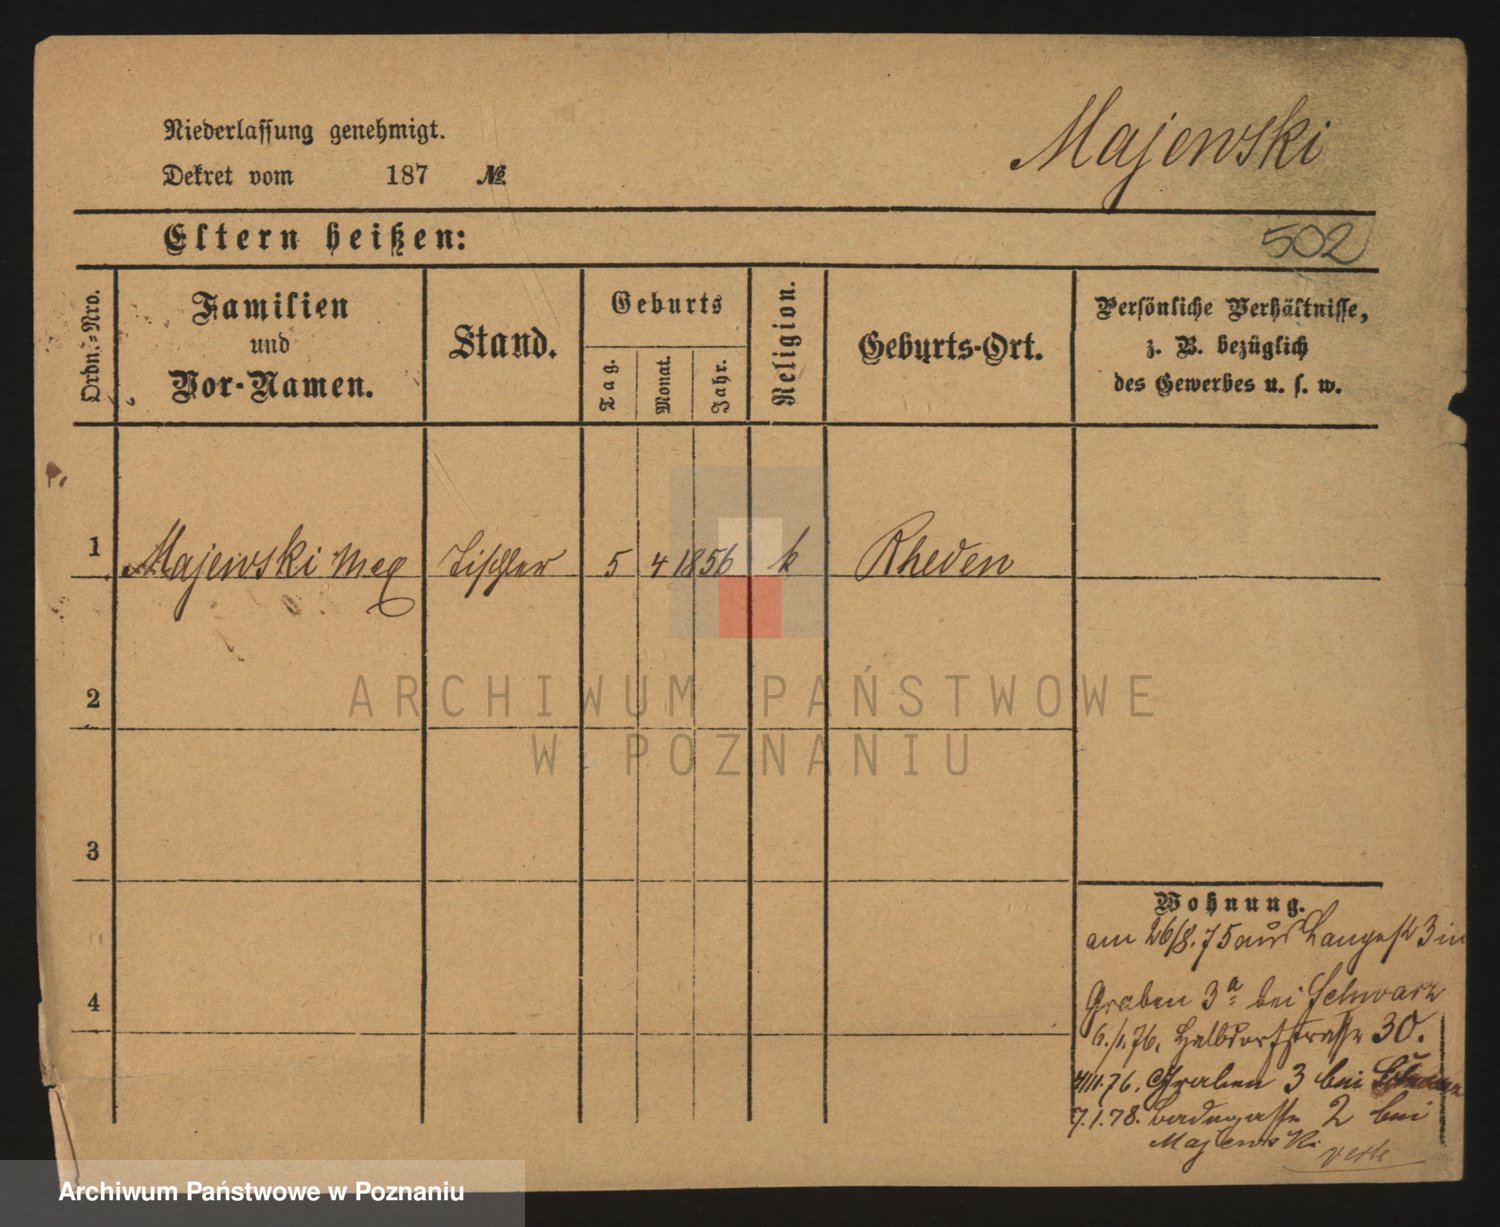 Niederlassung genehmigt.
Dekret vom 187 №
Majewski
Eltern heißen:
502
Ordn.-Nro.
Familien und Vor-Namen.
Stand.
Geburts
Tag.
Monat.
Jahr.
Religion.
Geburts-Ort.
Persönliche Verhältnisse,
z. B. bezüglich
des Gewerbes u. s. w.
1 Majewski Max Tischler 5 4 1856 k Rheden
2
3
4
ARCHIWUM PAŃSTWOWE
W POZNANIU
Wohnung.
am 26/8.75 aus Langestr 3 in
Graben 3a bei Schwarz
6./1.76. Halbdorfstrasse 30.
76. Graben 3 bei
7.1.78. Badegasse 2 bei
Majewski
verte
Archiwum Państwowe w Poznaniu